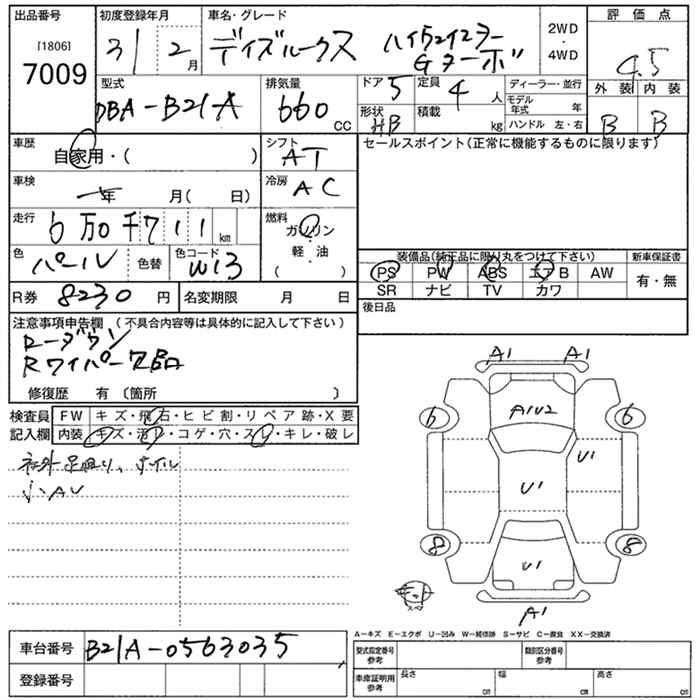 出品番号 初度登録年月 車名・グレード 2WD・4WD 評価点
[1806] 7009 31 2月 デイズルークス ハイウェイスター Gターボ 4.5
型式 DBA-B21A 排気量 660 CC ドア 5 定員 4人 ディーラー・並行 外装 B 内装 B
形状 HB 積載 kg モデル年式 年 ハンドル 左・右
車歴 自家用・( ) シフト AT セールスポイント(正常に機能するものに限ります)
車検 年 月( 日) 冷房 AC
走行 6万0千711km 燃料 ガソリン・軽・油 ( )
色 パール 色替 色コード W13 装備品(純正品に限り丸をつけて下さい) 新車保証書
PS PW ABS エアB AW 有・無
SR ナビ TV カワ
R券 8230円 名変期限 月 日 後日品
注意事項申告欄 (不具合内容等は具体的に記入して下さい)
ローダウン
Rワイパー欠品
修復歴 有 〔箇所 〕
検査員記入欄 FW キズ・飛石・ヒビ割・リペア跡・X要
内装 キズ・汚レ・コゲ・穴・スレ・キレ・破レ
社外足廻り、ホイル
小AU
A1 A1
6 A1U2 6
U1
U1
8 U1 8
スペア
A1
A-キズ E-エクボ U-凹み W-補修跡 S-サビ C-腐食 XX-交換済
車台番号 B21A-0563035 型式指定番号 参考 類別区分番号 参考
登録番号 車庫証明用 参考 長さ cm 幅 cm 高さ cm